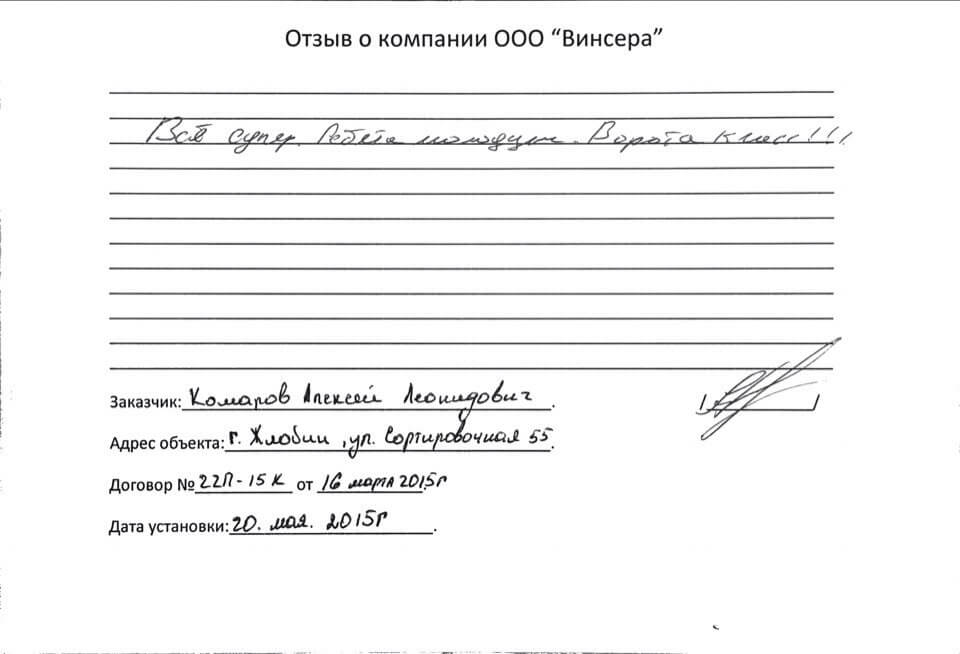 Отзыв о компании ООО “Винсера”
Всё супер. Ребята молодцы. Ворота класс!!!
Заказчик: Комаров Алексей Леонидович.
Адрес объекта: г. Жлобин, ул. Сортировочная 55.
Договор № 22П-15К от 16 марта 2015г
Дата установки: 20. мая. 2015г.